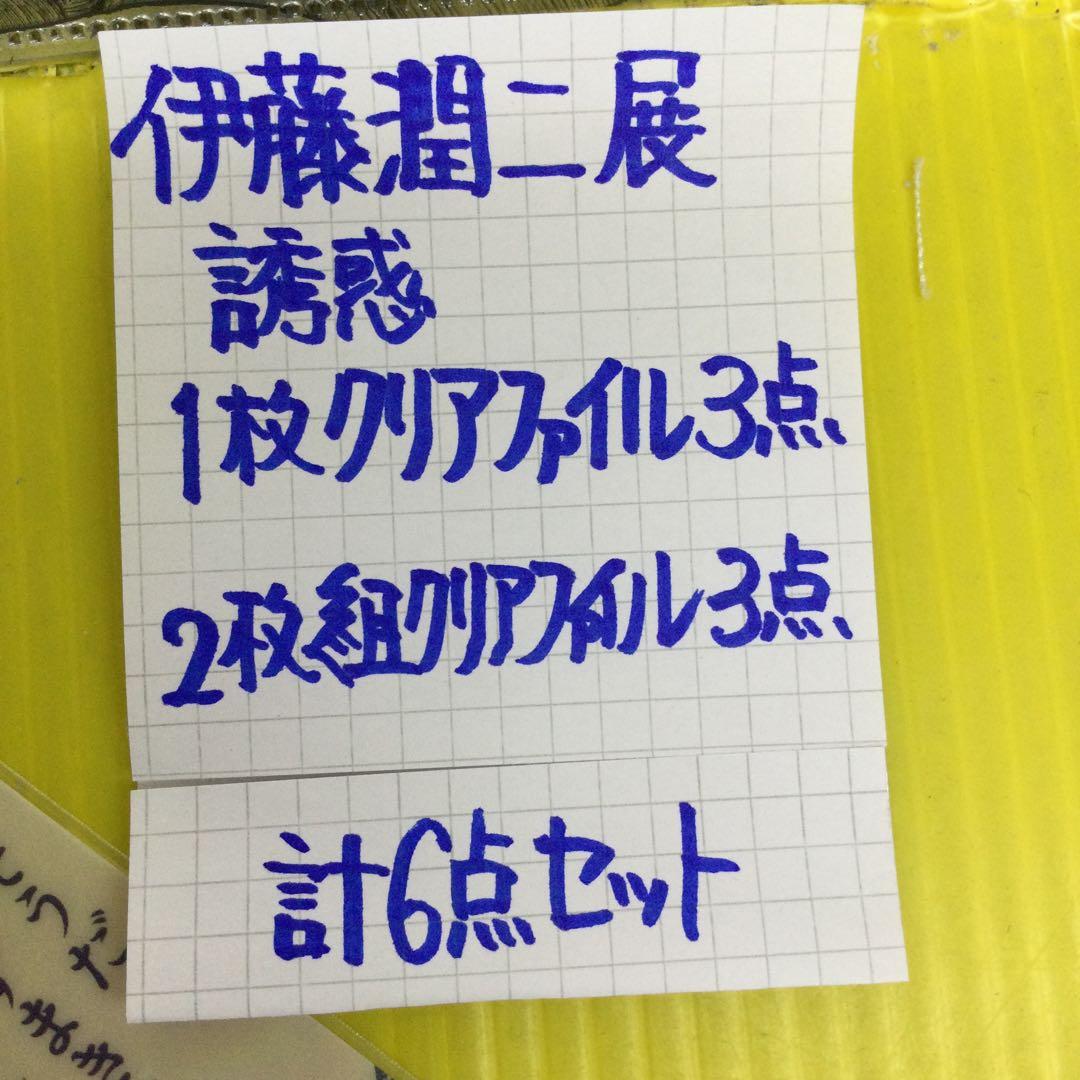 伊藤潤二展
誘惑
1枚クリアファイル3点
2枚組クリアファイル3点
計6点セット